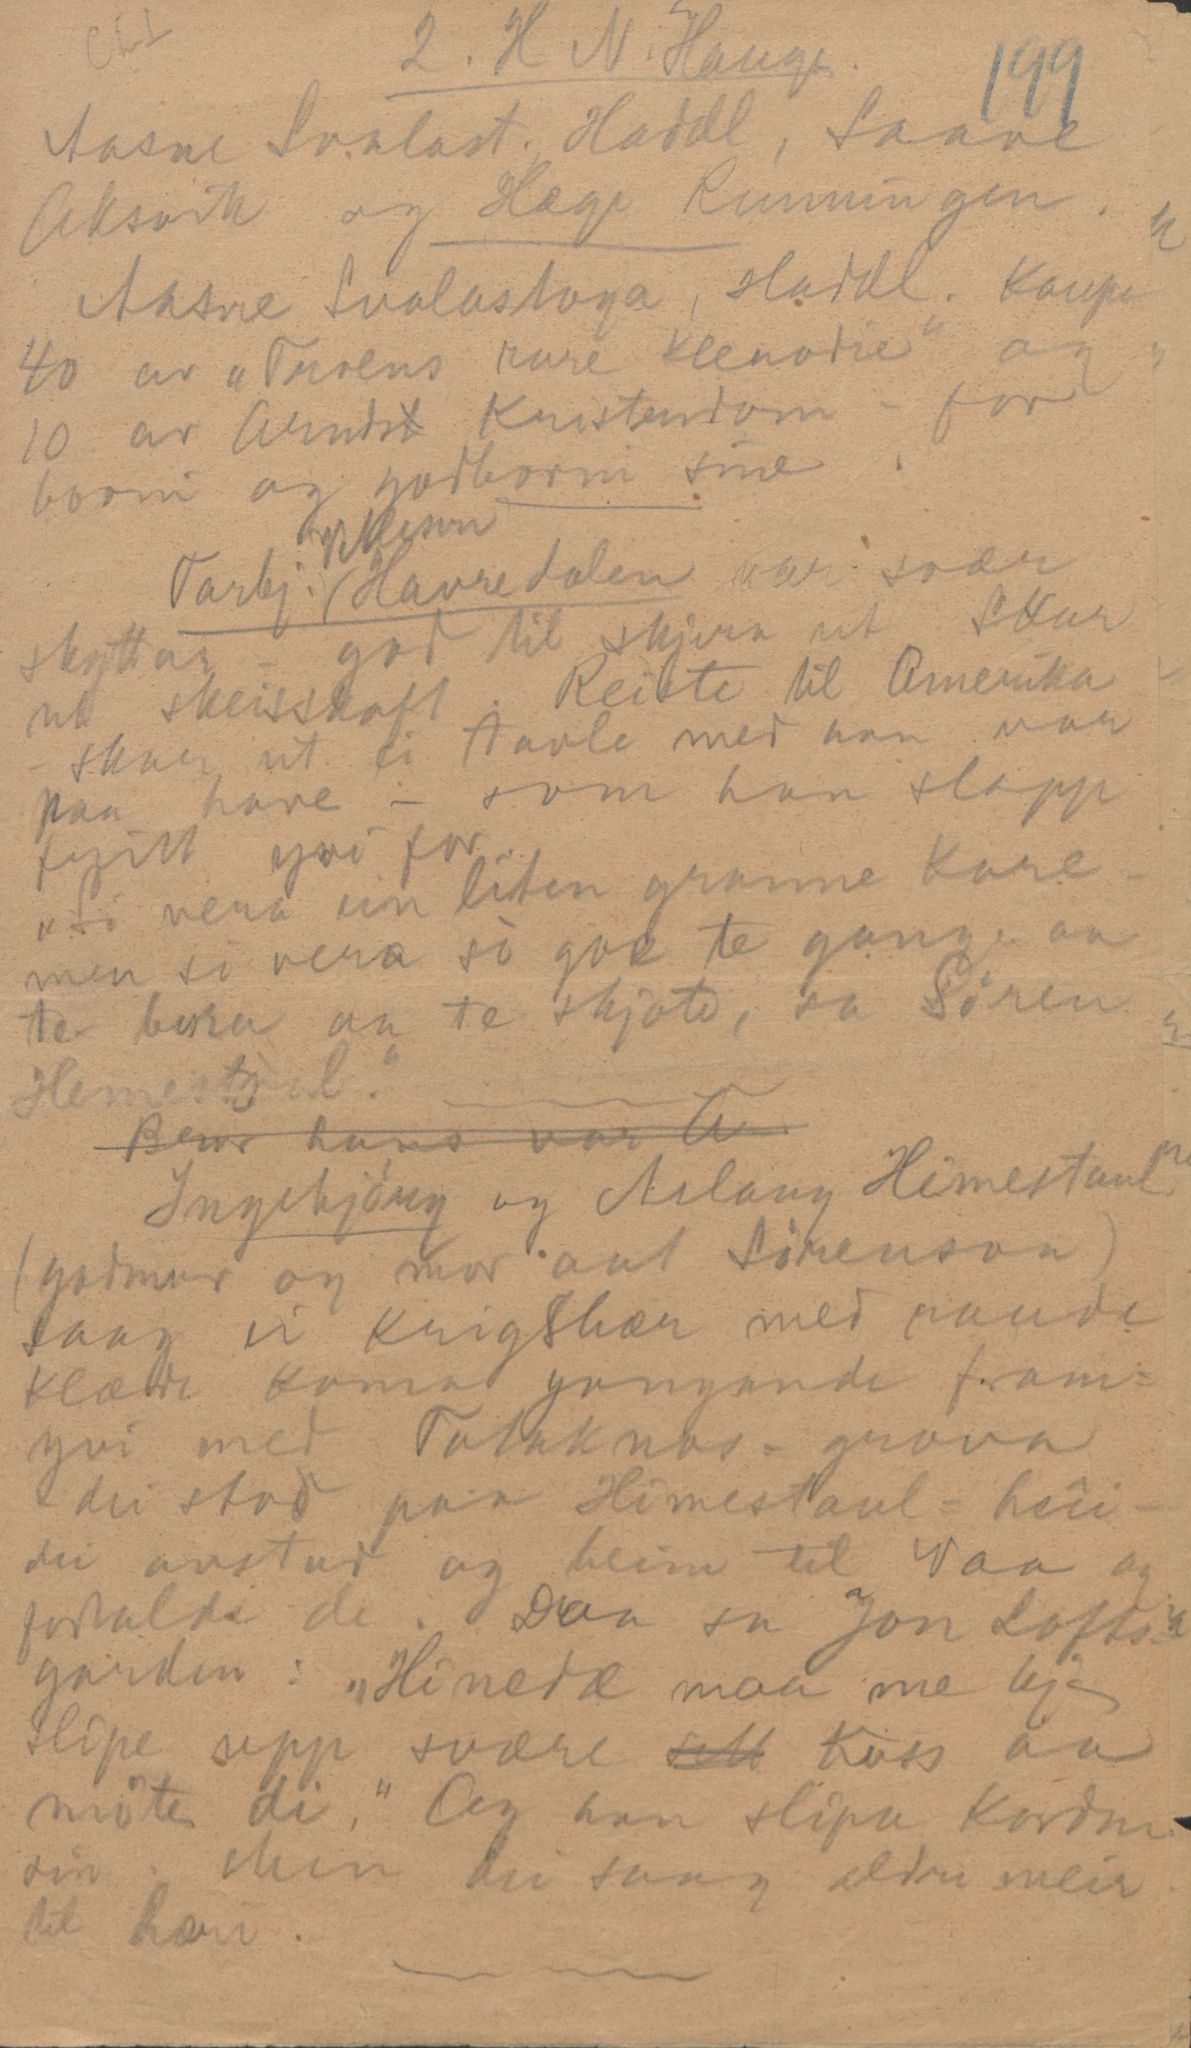 199
2. H N. Hauge.
Aasne Svalast. Haddl, Saave
Aksvik og Hæge Runningen.
Aasne Svalastoga, Haddl. Kaupe
40 av „Truens rare Klenodie" og
10 av Arndt Kristendom - for
borni og godborni sine.
Tarbj. Havredalen var svær
skyttar - god til skjera ut. Skar
ut skeisskaft. Reiste til Amerika
- skar ut ei tavle med han var
paa have - som han slapp
fritt yvi for.
„Si vera ein liten granne Kare -
men si vera så goe te gange aa
te bera aa te skjote, sa Sören
Hemestöul."
Beur hans var A
Ingebjörg og Aslaug Himestaul
(godmor og mor aat Sörenson)
saag ei Krigshær med raude
Klæde koma gangande fram=
yvi med Tabaknas-grova
dei stod paa Himestaul=heii -
dei avstad og heim til Vaa og
fortalde de. Daa sa Jon Lofts=
garden: „Hinedæ maa me
slipe upp svære aa
möte di." Og han slipa Korden
sin. Men dei saag aldri meir
til hæri.